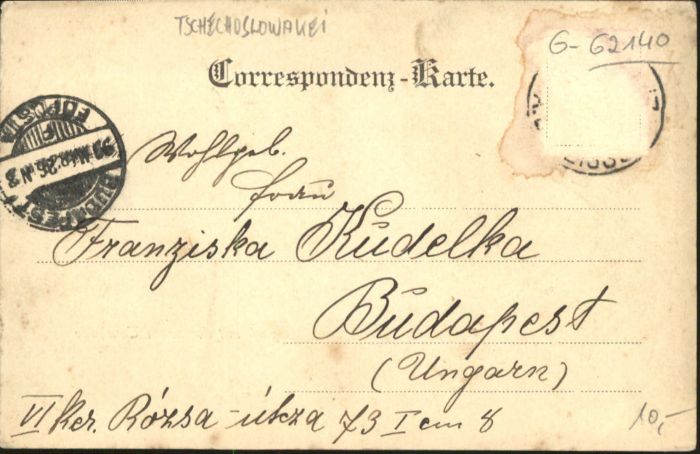 TSCHECHOSLOWAKEI
G-62140
Correspondenz-Karte.
BUDAPEST
FŐPOSTA
Wohlgeb.
Frau
Franziska Kudelka
Budapest
(Ungarn)
VI ker. Rózsa-utcza 73 I em 8
10,-